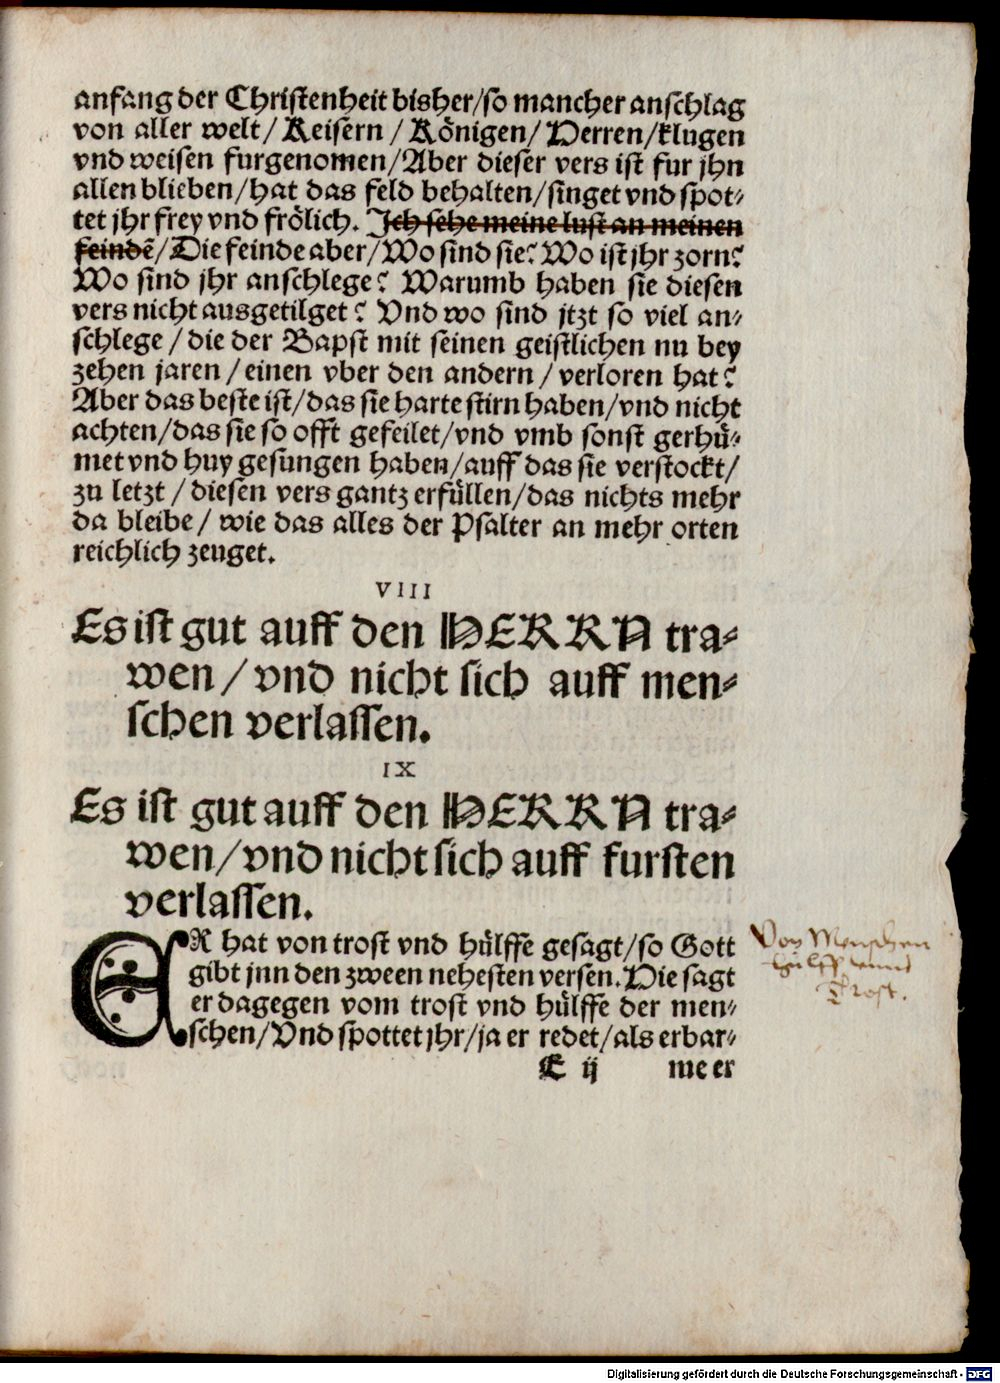 anfang der Christenheit bisher/so mancher anschlag
von aller welt/ Keisern / Königen/ Herren/klugen
vnd weisen furgenomen/Aber dieser vers ist fur jhn
allen blieben/hat das feld behalten/singet vnd spot⸗
tet jhr frey vnd frölich. Ich sehe meine lust an meinen
feindē/Die feinde aber/Wo sind sie? Wo ist jhr zorn?
Wo sind jhr anschlege? Warumb haben sie diesen
vers nicht ausgetilget? Vnd wo sind jtzt so viel an⸗
schlege / die der Bapst mit seinen geistlichen nu bey
zehen jaren / einen vber den andern / verloren hat?
Aber das beste ist/das sie harte stirn haben/vnd nicht
achten/das sie so offt gefeilet/vnd vmb sonst gerhü⸗
met vnd huy gesungen haben/auff das sie verstockt/
zu letzt / diesen vers gantz erfüllen/das nichts mehr
da bleibe / wie das alles der Psalter an mehr orten
reichlich zeuget.
VIII
Es ist gut auff den HERRN tra⸗
wen / vnd nicht sich auff men⸗
schen verlassen.
IX
Es ist gut auff den HERRN tra⸗
wen/vnd nicht sich auff fursten
verlassen.
ER hat von trost vnd hülffe gesagt/so Gott
gibt jnn den zween nehesten versen. Hie sagt
er dagegen vom trost vnd hülffe der men⸗
schen/Vnd spottet jhr/ja er redet/als erbar⸗
E ij me er
Von Menschen
hülff vnnd
Trost.
Digitalisierung gefördert durch die Deutsche Forschungsgemeinschaft - DFG